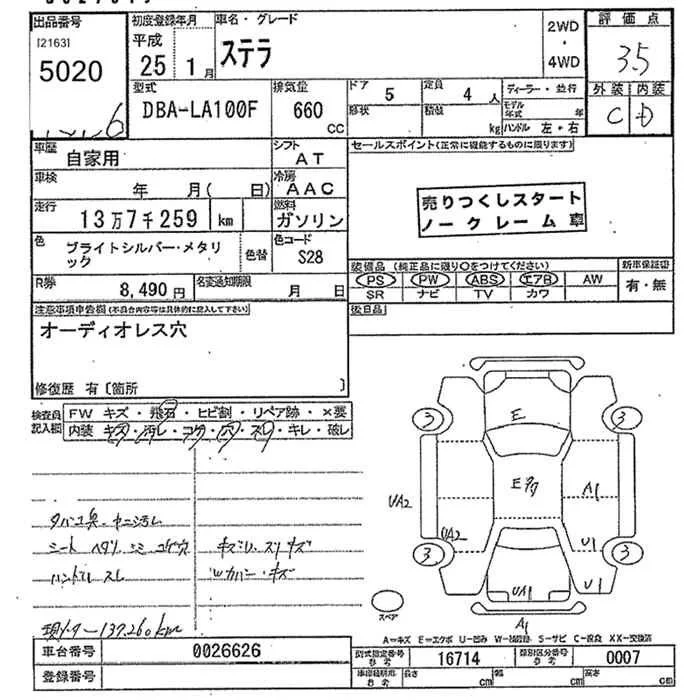 出品番号
[2163]
5020
初度登録年月
平成
25年 1月
車名・グレード
ステラ
2WD
・
4WD
評価点
3.5
外装 内装
C D
型式
DBA-LA100F
排気量
660
CC
ドア 5
形状
定員 4 人
積載 kg
ディーラー・並行
モデル年式 年
ハンドル 左・右
車歴 自家用
シフト AT
セールスポイント(正常に機能するものに限ります)
車検 年 月( 日)
冷房 AAC
売りつくしスタート
ノークレーム車
走行 13万7千259 km
燃料 ガソリン
色 ブライトシルバー・メタリック
色替
色コード S28
装備品 (純正品に限り○をつけてください)
新車保証書
PS PW ABS エアB AW
有・無
SR ナビ TV カワ
R券 8,490円
名変通知期限 月 日
後日品
注意事項申告欄(不具合内容等は具体的に記入して下さい)
オーディオレス穴
修復歴 有 [箇所 ]
検査員記入欄
FW キズ・飛石・ヒビ割・リペア跡・×要
内装 キズ・汚レ・コゲ・穴・スレ・キレ・破レ
タバコ臭・ヤニ汚レ
シート
ハンドルスレ
キズ
Wカバー・キズ
現メーター137,260km
E
3 3
A1
UA2
UA2
U1
3 3
UA1
U1
A1
スペア
A=キズ E=エクボ U=凹み W=補修跡 S=サビ C=腐食 XX=交換済
車台番号 0026626
型式指定番号 参考 16714
類別区分番号 参考 0007
登録番号
車庫証明用 参考 長さ cm 幅 cm 高さ cm